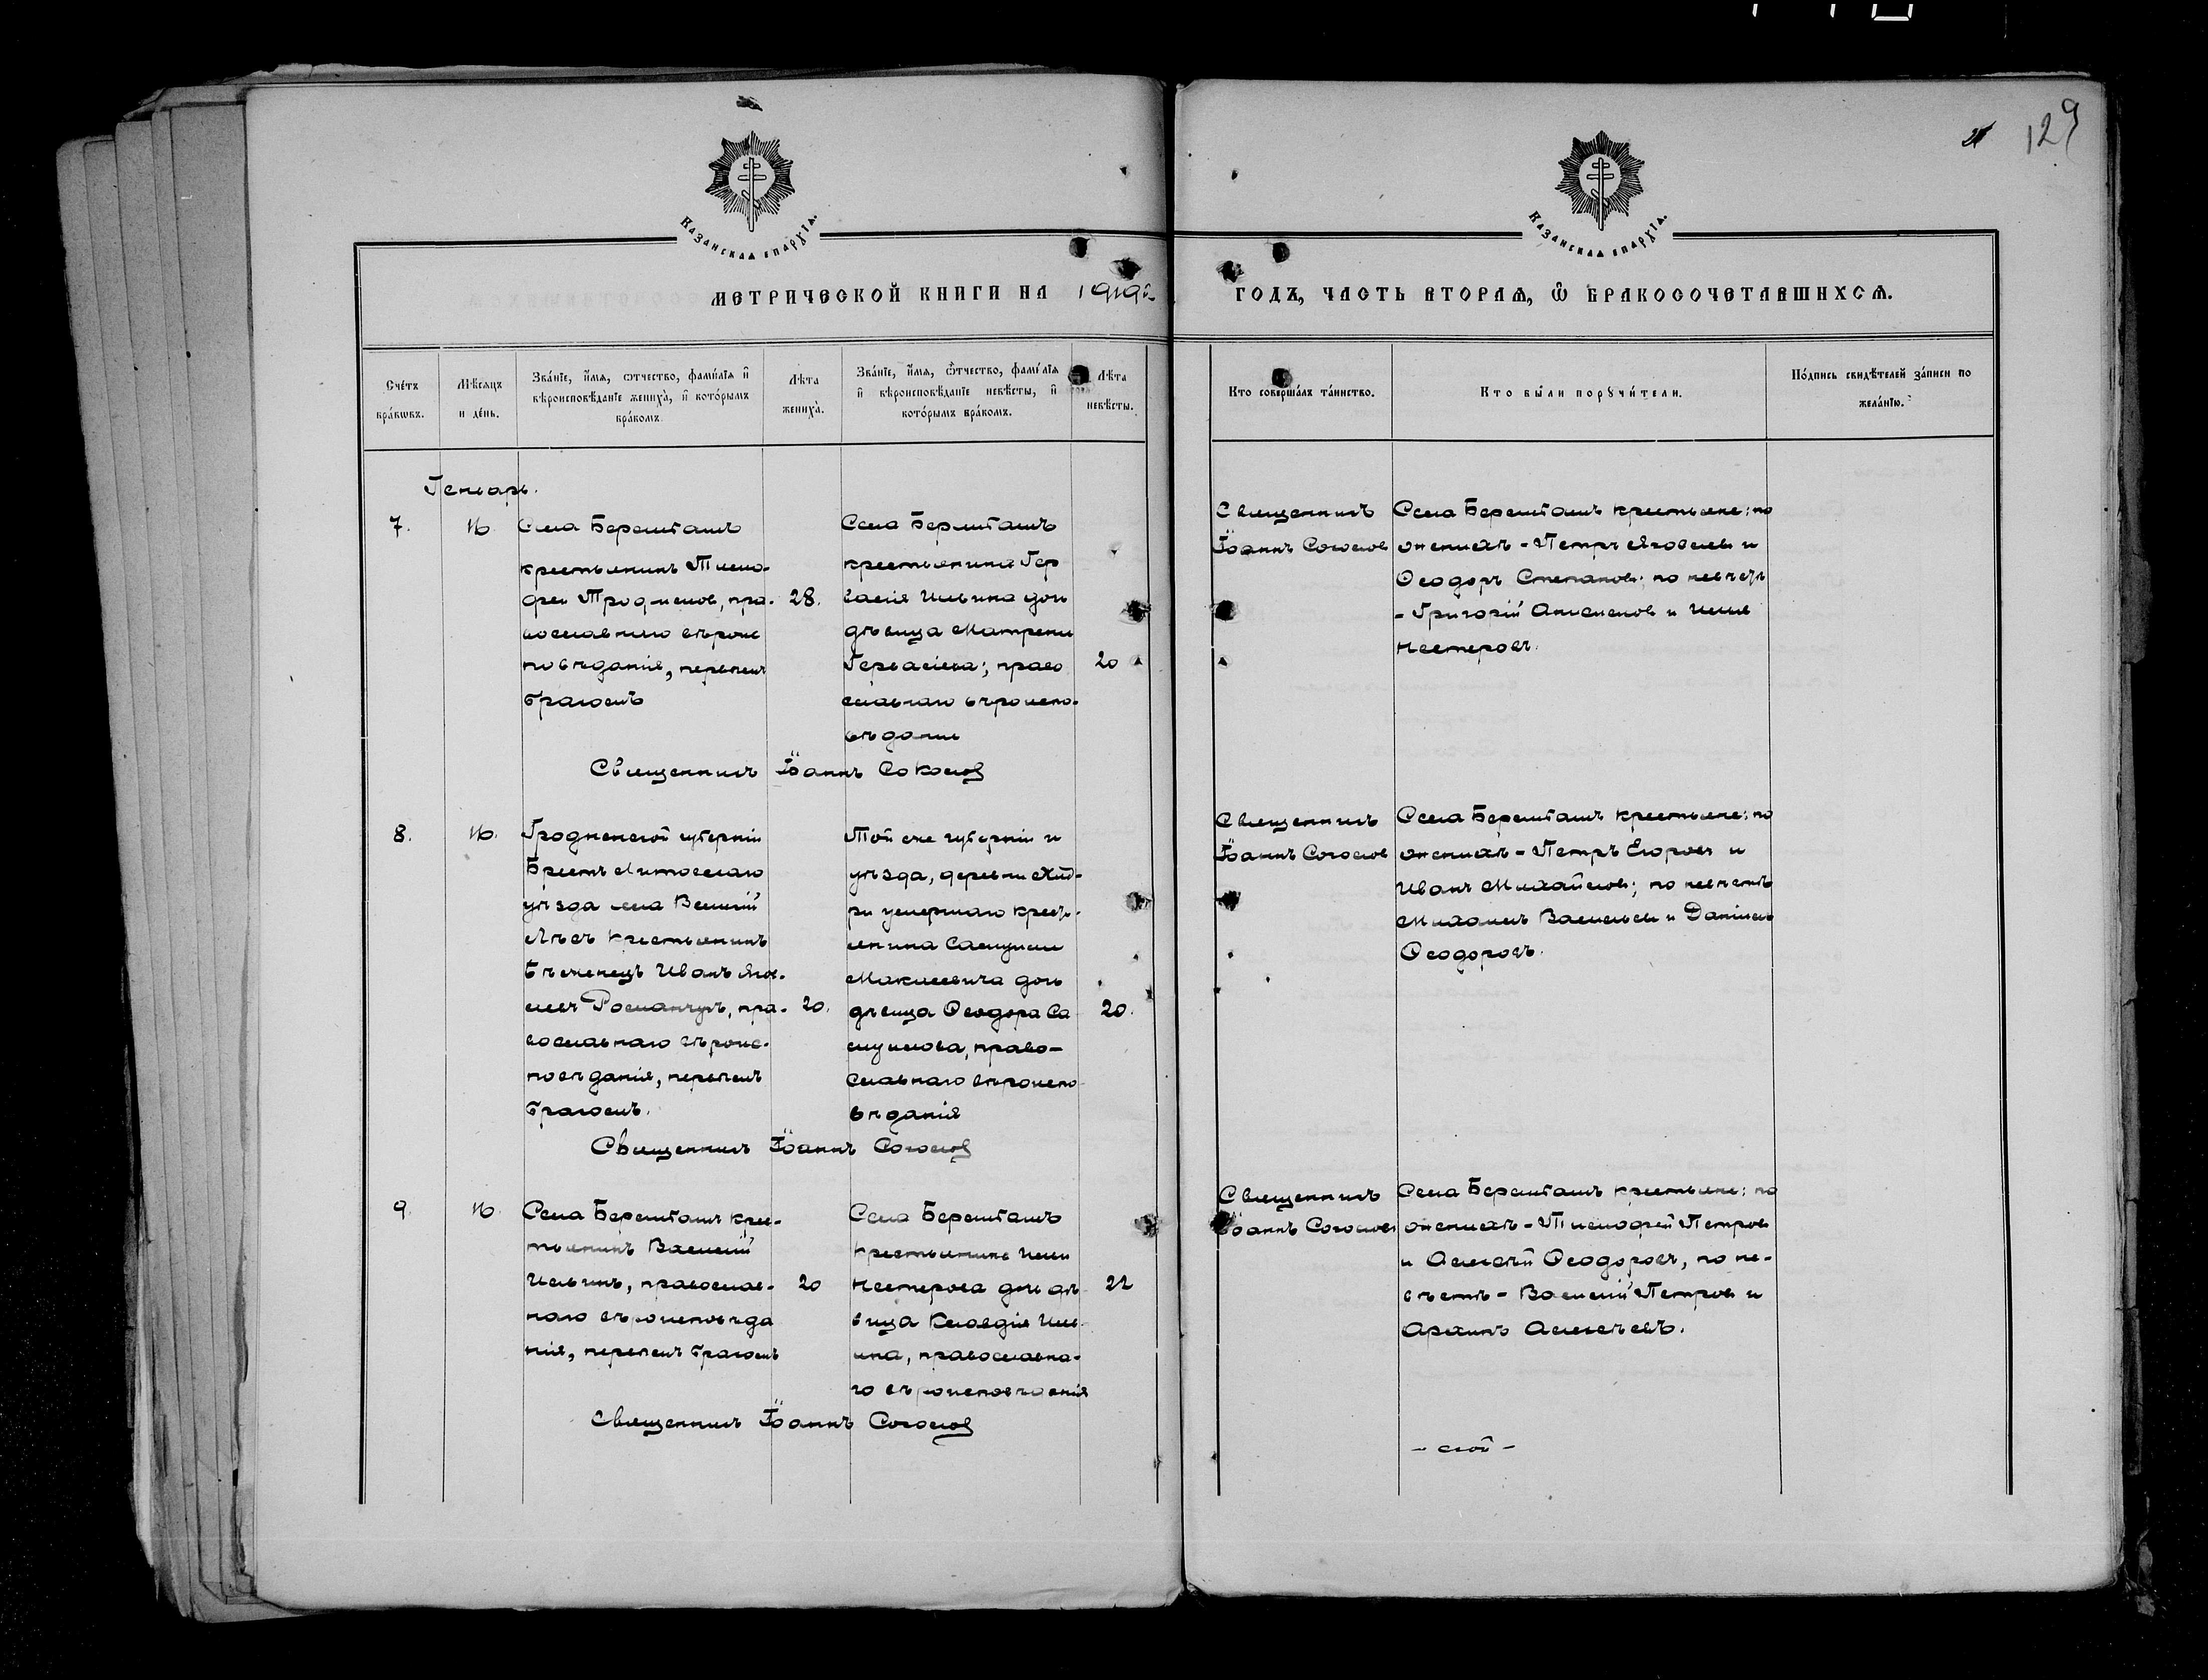 129
Казанская епархїа.
Казанская епархїа.
МЕТРИЧЕСКОЙ КНИГИ НА 1919 й
ГОДЪ, ЧАСТЬ ВТОРАѦ, Ѽ БРАКОСОЧЕТАВШИХСѦ.
Счетъ браковъ.
Мѣсяцъ и день.
Званїе, имя, отчество, фамилїя и вѣроисповѣданїе жениха, и которымъ бракомъ.
Лѣта жениха.
Званїе, имя, отчество, фамилїя и вѣроисповѣданїе невѣсты, и которымъ бракомъ.
Лѣта невѣсты.
Кто совершалъ таинство.
Кто были поручители.
Подпись свидѣтелей записи по желанїю.
Генварь.
7.
16
Села Берешташъ
крестьянинъ Тимо-
фей Трофимовъ, пра-
вославнаго вѣроис
повѣданія, первымъ
бракомъ
28.
Села Берешташъ
крестьянина Гер
васія Ильина дочь
дѣвица Матрена
Гервасіева; право
славнаго вѣроиспо-
вѣданія
20
Священникъ
Іоаннъ Соколовъ
Села Берешташъ крестьяне: по
женихѣ - Петръ Яковлевъ и
Ѳеодоръ Степановъ; по невѣстѣ
- Григорій Анисимовъ и Илья
Нестеровъ.
Священникъ Іоаннъ Соколовъ
8.
16.
Гродненской губерніи
Брестъ Литовскаго
уѣзда села
Лѣсъ крестьянинъ
бѣженецъ Иванъ Яков-
левъ Романчукъ, пра-
вославнаго вѣроис-
повѣданія, первымъ
бракомъ.
20.
Той же губерніи и
уѣзда, деревни
умершаго кресть-
янина Самуила
дочь
дѣвица Ѳеодора Са
муилова, право-
славнаго вѣроиспо
вѣданія
20.
Священникъ
Іоаннъ Соколовъ
Села Берешташъ крестьяне: по
женихѣ - Петръ Егоровъ и
Иванъ Михайловъ; по невѣстѣ
Михаилъ Васильевъ и Даніилъ
Ѳеодоровъ.
Священникъ Іоаннъ Соколовъ
9
16
Села Берешташъ крес-
тьянинъ Василій
Ильинъ, православ-
наго вѣроисповѣда
нія, первымъ бракомъ
20
Села Берешташъ
крестьянина Ильи
Нестерова дочь дѣ
вица Клавдія Иль-
ина, православна-
го вѣроисповѣданія
22
Священникъ
Іоаннъ Соколовъ
Села Берешташъ крестьяне: по
женихѣ - Тимофей Петровъ
и Алексѣй Ѳеодоровъ, по не-
вѣстѣ - Василій Петровъ и
Архипъ Алексѣевъ.
Священникъ Іоаннъ Соколовъ